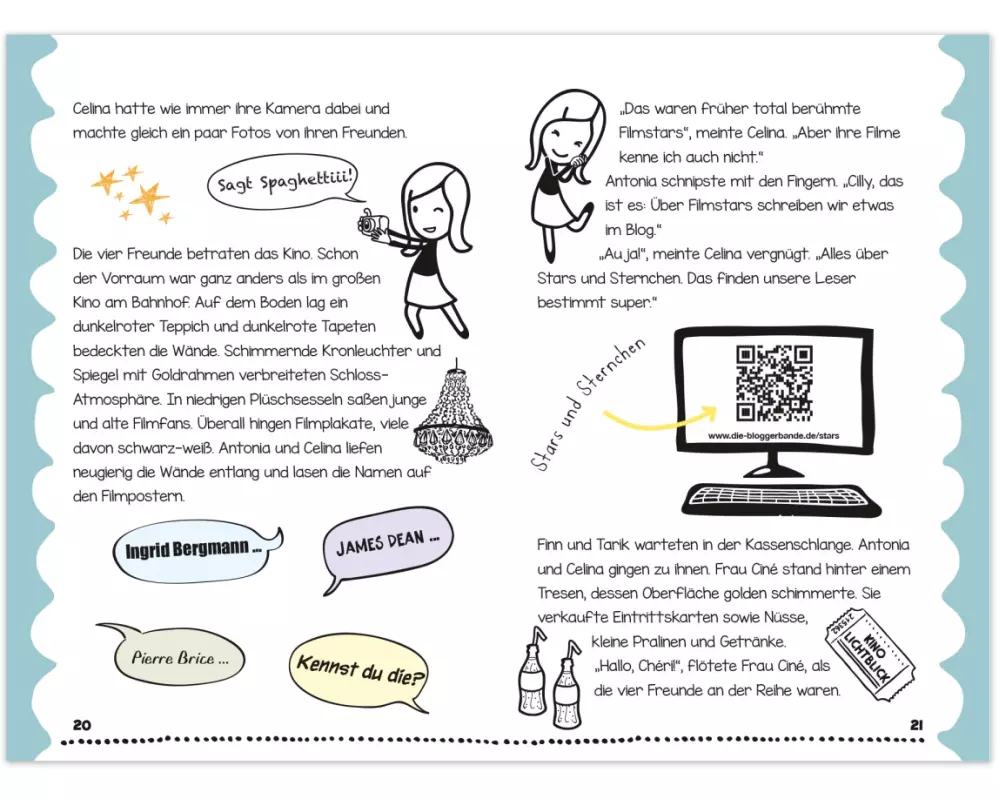 Celina hatte wie immer ihre Kamera dabei und
machte gleich ein paar Fotos von ihren Freunden.
Sagt Spaghettiii!
Die vier Freunde betraten das Kino. Schon
der Vorraum war ganz anders als im großen
Kino am Bahnhof. Auf dem Boden lag ein
dunkelroter Teppich und dunkelrote Tapeten
bedeckten die Wände. Schimmernde Kronleuchter und
Spiegel mit Goldrahmen verbreiteten Schloss-
Atmosphäre. In niedrigen Plüschsesseln saßen junge
und alte Filmfans. Überall hingen Filmplakate, viele
davon schwarz-weiß. Antonia und Celina liefen
neugierig die Wände entlang und lasen die Namen auf
den Filmpostern.
Ingrid Bergmann ...
JAMES DEAN ...
Pierre Brice ...
Kennst du die?
20
„Das waren früher total berühmte
Filmstars“, meinte Celina. „Aber ihre Filme
kenne ich auch nicht.“
Antonia schnipste mit den Fingern. „Cilly, das
ist es: Über Filmstars schreiben wir etwas
im Blog.“
„Au ja!“, meinte Celina vergnügt. „Alles über
Stars und Sternchen. Das finden unsere Leser
bestimmt super.“
Stars und Sternchen
www.die-bloggerbande.de/stars
Finn und Tarik warteten in der Kassenschlange. Antonia
und Celina gingen zu ihnen. Frau Ciné stand hinter einem
Tresen, dessen Oberfläche golden schimmerte. Sie
verkaufte Eintrittskarten sowie Nüsse,
kleine Pralinen und Getränke.
„Hallo, Chéri!“, flötete Frau Ciné, als
die vier Freunde an der Reihe waren.
215362
KINO
LICHTBLICK
21